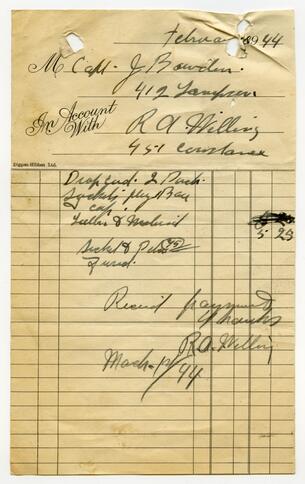 February 1944
M Capt. J Bowden.
412 Lampson
In Account
With
R A Willing
451 Constance
Diggon-Hibben Ltd.
Drop Cord. 2 Push.
Sockets. plug Bar
& cap.
Labor & Material
5 25
Received payment
thanks
R.A. Willing
March 1/
44